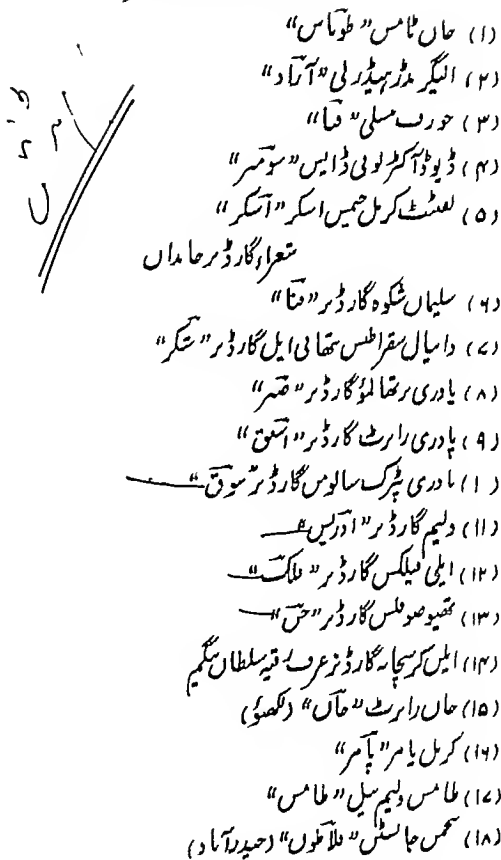 (۱) جان ٹامس "طوماس"
(۲) الیگزنڈر ہیڈرلی "آزاد"
(۳) جوزف مسلی "فنا"
(۴) ڈیوڈ آکٹرلونی ڈایس "سومبر"
(۵) لفٹنٹ کرنل جیمس اسکنر "اسکنر"
شعراء گارڈنر خاندان
(۶) سلیمان شکوہ گارڈنر "فنا"
(۷) دانیال سقراطیس نتھانی ایل گارڈنر "شکر"
(۸) پادری برتھالمؤ گارڈنر "صبر"
(۹) پادری رابرٹ گارڈنر "اسبق"
(۱۰) پادری پٹرک سالومن گارڈنر "شوق"
(۱۱) ولیم گارڈنر "ادریس"
(۱۲) ایلی فیلکس گارڈنر "فلک"
(۱۳) تھیوصوفلس گارڈنر "جن"
(۱۴) ایلس کرسچانہ گارڈنر عرف رقیہ سلطان بیگم
(۱۵) جان رابرٹ "جان" (لکھنؤ)
(۱۶) کرنل پامر "پامر"
(۱۷) طامس ولیم بیل "طامس"
(۱۸) جانسٹن "فلاطوں" (حیدرآباد)